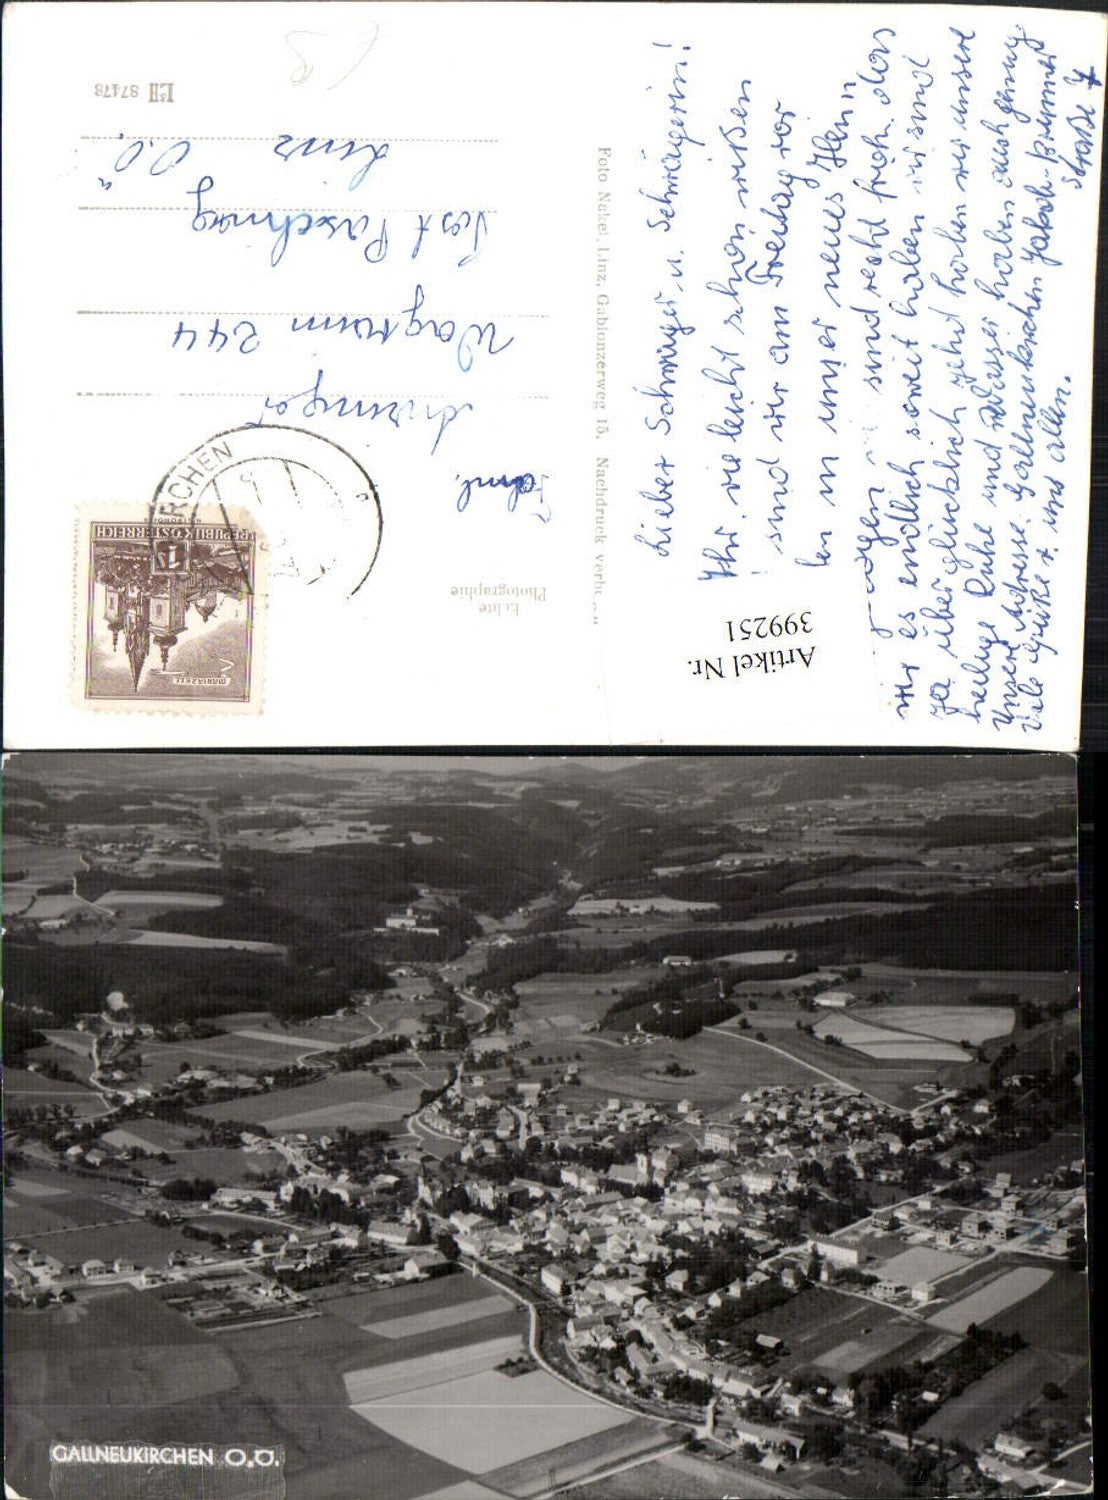 Lieber Schwager u. Schwägerin!
Ihr vieleicht schon wißen
sind wir am Freitag vor
in unser neues Heim
sind recht froh das
wir es endlich soweit haben wir sind
ja überglücklich jetzt haben wir unsere
heilige Ruhe und Wasser haben auch genug
Unsere Adresse. Gallneukirchen Jakob-Brunner
Straße 7
Viele Grüße v. uns allen.
Foto Nakel, Linz, Gablonzerweg 15. Nachdruck verboten
Echte
Photographie
Faml.
Wagram 244
Post Pasching
Linz O.Ö.
L&II 87478
REPUBLIK ÖSTERREICH
MARIAZELL
RCHEN
Artikel Nr.
399251
GALLNEUKIRCHEN O.Ö.